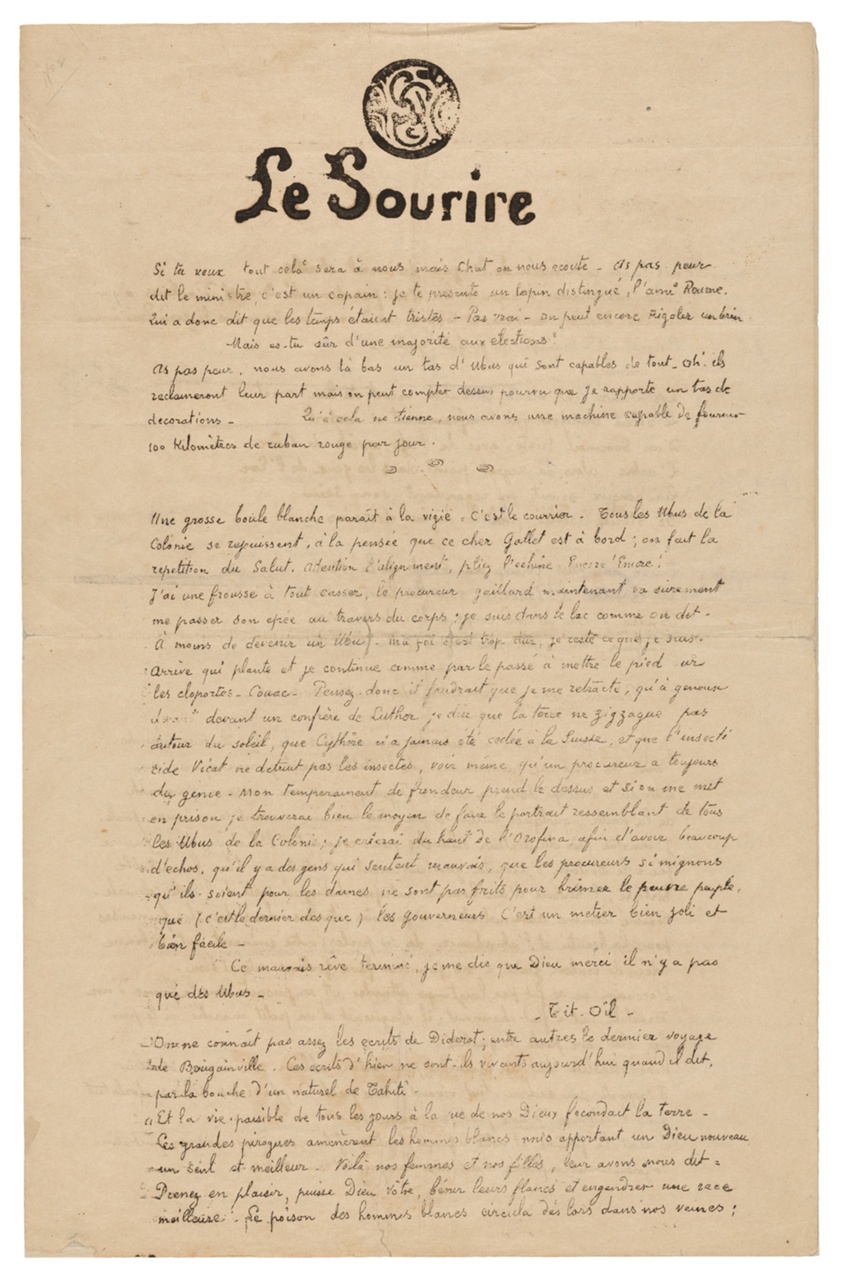 Le Sourire
Si tu veux tout celà sera à nous mais Chut on nous écoute - As pas peur
dit le ministre, c'est un copain : je te présente un lapin distingué, l'ami Roume.
Qui a donc dit que les temps étaient tristes - Pas vrai - on peut encore Rigoler un brin
Mais es-tu sûr d'une majorité aux élections?
As pas peur, nous avons là bas un tas d'Ubus qui sont capables de tout - Oh! ils
réclameront leur part mais on peut compter dessus pourvu que je rapporte un tas de
décorations - Qu'à cela ne tienne, nous avons une machine capable de fournir
100 Kilomètres de ruban rouge par jour.
Une grosse boule blanche paraît à la vigie. C'est le courrier. Tous les Ubus de la
Colonie se rejouissent, à la pensée que ce cher Gallet est à bord ; on fait la
repetition du Salut. Attention à l'alignement, pliez l'echine. Encore! Encore!
J'ai une frousse à tout casser, le procureur gaillard maintenant va surement
me passer son epée au travers du corps ; je suis dans le lac comme on dit -
À moins de devenir un Ubu - ma foi c'est trop dur, je reste ce que je suis -
Arrive qui plante et je continue comme par le passé à mettre le pied sur
les cloportes - Couac - Pensez-donc il faudrait que je me retracte, qu'à genoux
devant un confrère de Luthor je dise que la terre ne zigzague pas
autour du soleil, que Cythère n'a jamais été cedée à la Suisse, et que l'insecti
cide Vicat ne detruit pas les insectes, voir même qu'un procureur a toujours
du genie - Mon temperament de frondeur prend le dessus et si on me met
en prison je trouverai bien le moyen de faire le portrait ressemblant de tous
les Ubus de la Colonie ; je crierai du haut de l'Orofina afin d'avoir beaucoup
d'echos, qu'il y a des gens qui sentent mauvais, que les procureurs si mignons
qu'ils soient pour les dames ne sont pas faits pour brimer le pauvre peuple,
que (c'est le dernier des que) les gouverneurs C'est un metier bien joli et
bien facile -
Ce mauvais rêve terminé, je me dis que Dieu merci il n'y a pas
que des Ubus -
- Tit-Oïl -
On ne connait pas assez les ecrits de Diderot ; entre autres le dernier voyage
de Bougainville. Ces ecrits d'hier ne sont-ils vivants aujourd'hui quand il dit,
par la bouche d'un naturel de Tahiti -
"Et la vie paisible de tous les jours à la vue de nos Dieux fecondait la terre -
Les grandes pirogues amenèrent les hommes blancs nous apportant un Dieu nouveau
un seul et meilleur. Voilà nos femmes et nos filles, leur avons nous dit =
Prenez en plaisir, puisse Dieu Vôtre, bénir leurs flancs et engendrer une race
meilleure. Le poison des hommes blancs circula dès lors dans nos veines ;